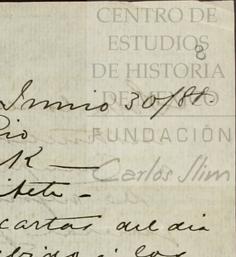 CENTRO DE
ESTUDIOS
DE HISTORIA
DE MÉXICO
FUNDACIÓN
Carlos Slim
8
Junio 30/88.
Rio
K —
cartas del dia
los